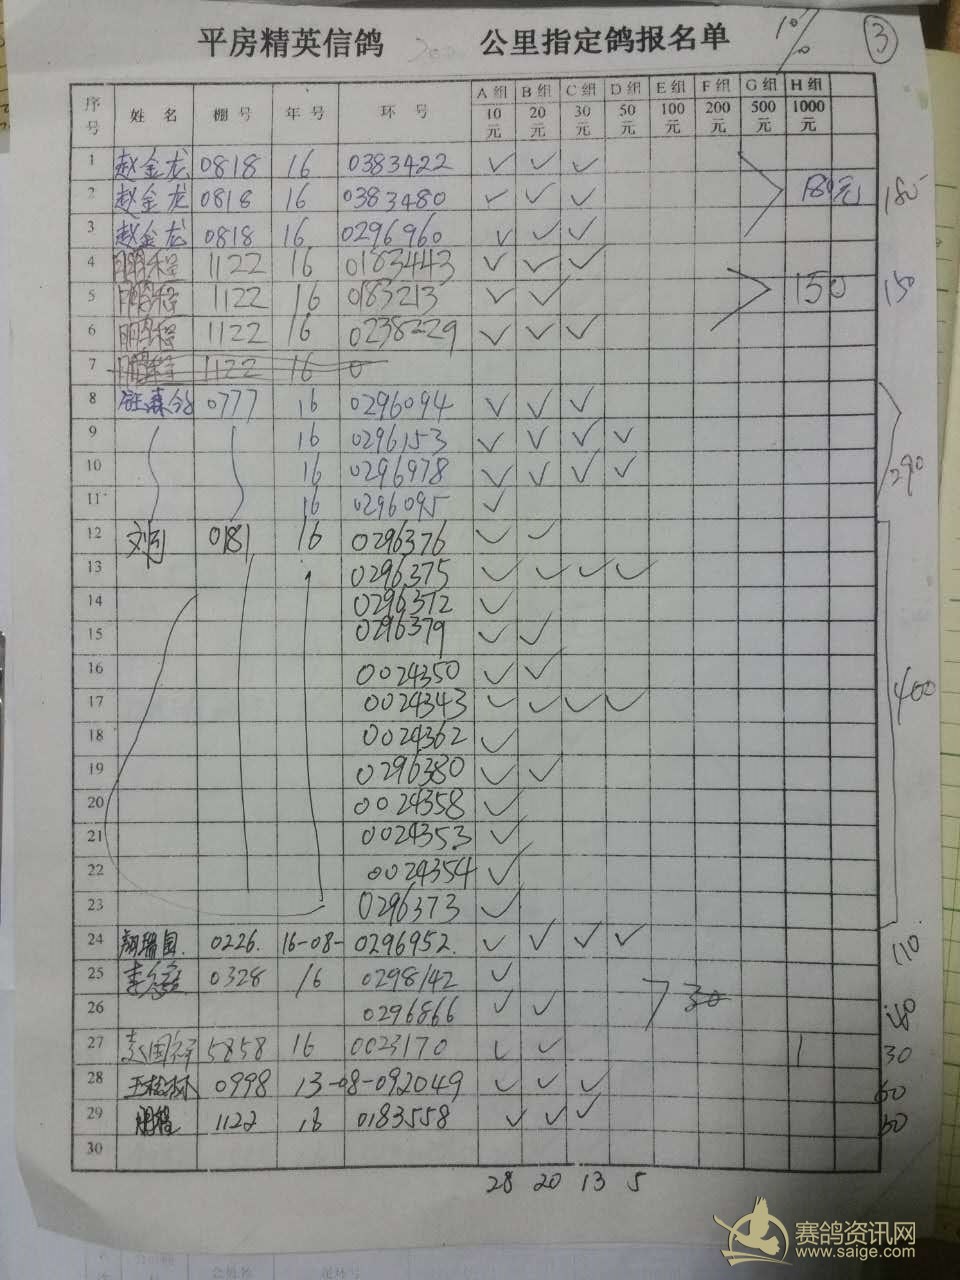 平房精英信鸽 300 公里指定鸽报名单 10% ③
序号 姓名 棚号 年号 环号 A组10元 B组20元 C组30元 D组50元 E组100元 F组200元 G组500元 H组1000元
1 赵金龙 0818 16 0383422 ✓ ✓ ✓
2 赵金龙 0818 16 0383480 ✓ ✓ ✓ 180元 180
3 赵金龙 0818 16 0296960 ✓ ✓ ✓
4 1122 16 0183443 ✓ ✓ ✓
5 1122 16 0183213 ✓ ✓ 150 150
6 1122 16 0238229 ✓ ✓ ✓
7 1122 16 0
8 0777 16 0296094 ✓ ✓ ✓
9 16 0296153 ✓ ✓ ✓ ✓
10 16 0296978 ✓ ✓ ✓ ✓ 290
11 16 0296095 ✓
12 0181 16 0296376 ✓ ✓
13 0296375 ✓ ✓ ✓ ✓
14 0296372 ✓
15 0296379 ✓ ✓
16 0024350 ✓ ✓
17 0024343 ✓ ✓ ✓ ✓ 400
18 0024362 ✓
19 0296380 ✓ ✓
20 0024358 ✓
21 0024353 ✓
22 0024354 ✓
23 0296373 ✓
24 0226. 16-08- 0296952. ✓ ✓ ✓ ✓ 110
25 0328 16 0298142 ✓ 30
26 0296866 ✓ ✓ 40
27 5858 16 0023170 ✓ ✓ 30
28 王松林 0998 13-08-092049 ✓ ✓ ✓ 60
29 1122 16 0183558 ✓ ✓ ✓
30
28 20 13 5
赛鸽资讯网
www.saige.com